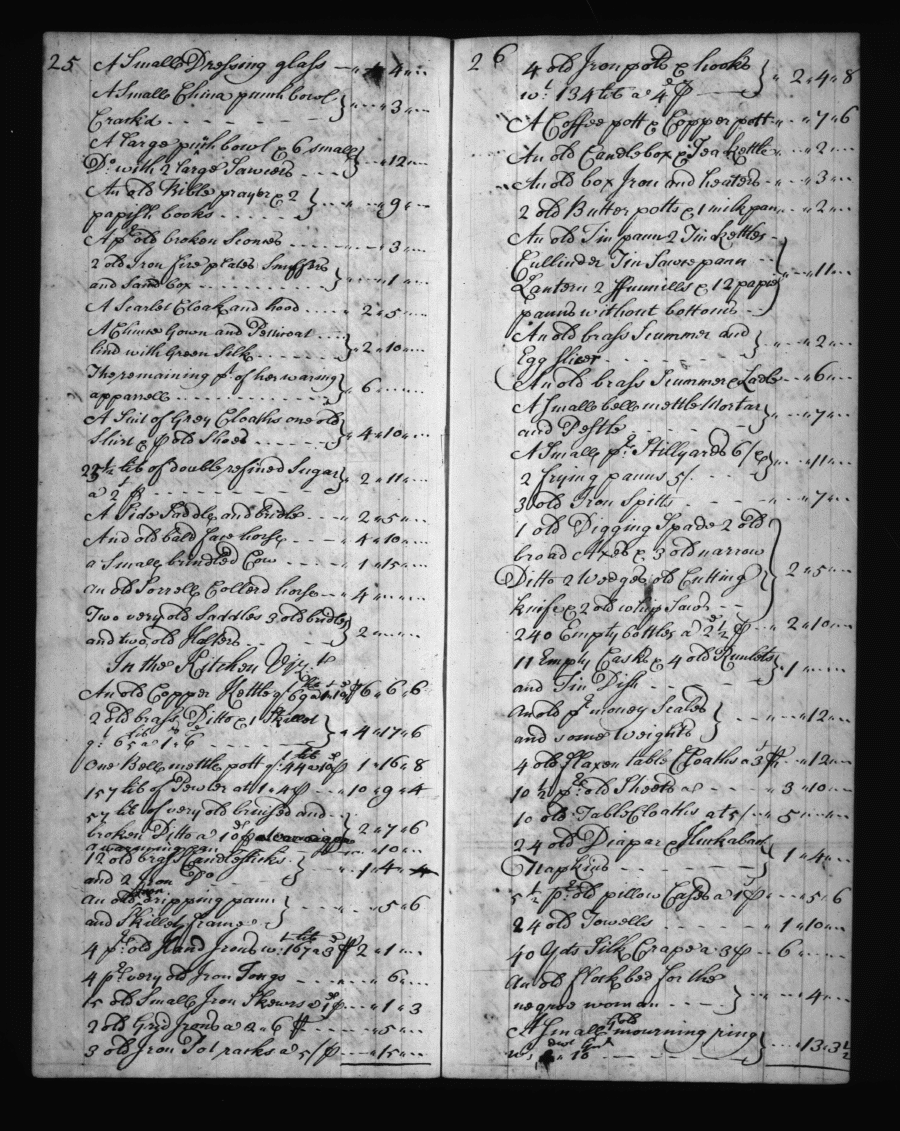 25
A Small Dressing glass — " " 4 " ...
A Small China punch bowl
Crack'd - - - - - } " ... " 3 " ...
A large punch bowl & 6 small
Do. with 2 large Sawcers ... } " 12 " ...
An old Bible prayer & 2
papish books - - - - } " " 9 " ...
A pr. old broken Sconces - - - - " 3 " ...
2 old Iron fire plates Snuffers
and Sand box - - - - - } " " 1 " ...
A Scarlet Cloak and hood - - - " 2 " 5 " ...
A Gown and Petticoat
lind with Green Silk - - - } " 2 " 10 " ...
The remaining pt. of her waring
apparrell - - - - - } " 6 " ...
A Suit of Grey Cloaths one old
Shirt & pr. old Shoes - - - } " 4 " 10 " ...
lib of double refined Sugar
a 2/ ⅌ - - - - - } " 2 " 11 " ...
A Side Saddle and bridle - - - " 2 " 5 " ...
And old bald face horse - - - " 4 " 10 " ...
a Small brindled Cow - - - " 1 " 15 " ...
an old Sorrell Collerd horse - - " 4 " ...
Two very old Saddles 3 old bridles
and two old - - - } 2 " ...
In the Kitchen Vizt.
An old Copper Kettle qt. 69 " 6 " 6 " 6
2 old brass Ditto & 1 Skillet
qt. 65 lib a 1 " 6 - - - } " 4 " 17 " 6
One Bell mettle pott qt. 44 lib a 10d ⅌ 1 " 16 " 8
157 lib of Pewter at 1 " 4 ⅌ - - " 10 " 9 " 4
57 lib of very old bruised and
broken Ditto a 10d ⅌ } 2 " 7 " 6
a warming pan " 10 " ...
12 old brass Candlesticks
and 2 Iron Do - - - } " 1 " 4 "
an old Iron dripping pann
and Skillet frame - - } " " 5 " 6
4 pr. old Hand Irons wt. 167 lib a 3d ⅌ 2 " 1 " ...
4 pr. very old Iron Tongs - - - " " 6 " ...
15 old Small Iron Skewrs a 1d ⅌ - - " 1 " 3
2 old Grid Irons a 2 " 6 ⅌ - - " 5 " ...
3 old Iron Pot racks a 5/ ⅌ - - " 15 " ...
26
4 old Iron pots & hooks
wt. 134 lib a 4d ⅌ - - } " 2 " 4 " 8
A Coffee pott & Copper pott - " " 7 " 6
An old Candlebox & Tea kettle - " " 2 " ...
An old box Iron and heaters - - " " 3 " ...
2 old Butter potts & 1 milk pan - " " 2 " ...
An old Tin pann 2 Tin kettles
Cullinder Tin Sawce pann
Lantern 2 ffunnills & 12 papie
panns without bottoms - - } " 11 " ...
An old brass Scummer and
Egg slicer - - - - } " " 2 " ...
An old brass Scummer & Ladle - - " 6 " ...
A Small bell mettle Mortar
and Pestle - - - - } " " 7 " ...
A Small pr. Stillyards 6/ &
2 frying panns 5/. - - } " " 11 " ...
3 old Iron Spitts - - - " " 7 " ...
1 old Digging Spade 2 old
broad Axes & 3 old narrow
Ditto 2 Wedges old Cutting
knife & 2 old whip Saws - - } 2 " 5 " ...
240 Empty bottles a 2½d ⅌ - - " 2 " 10 " ...
11 Empty Casks & 4 old Runlets
and Tin Dish - - - } " 1 " ...
an old pr. money Scales
and some Weights - - } " " 12 " ...
4 old fflaxen table Cloaths a 3/ ⅌ " 12 " ...
10 ½ pr. old Sheets a - - " 3 " 10 " ...
10 old Table Cloaths at 5/ - - " 5 " ...
24 old Diaper & Huckaback
Napkins - - - - } " 1 " 4 " ...
5 ½ pr. old pillow Cases a 1/ ⅌ - " " 5 " 6
24 old Towells - - - - " 1 " 10 " ...
40 Yds Silk Crape a 3/ ⅌ - - 6 " ...
an old fflock bed for the
negroe woman - - - } " " 4 " ...
A Small Gold mourning ring
wt. dwt Gr - - - } " 13 " 3 ½